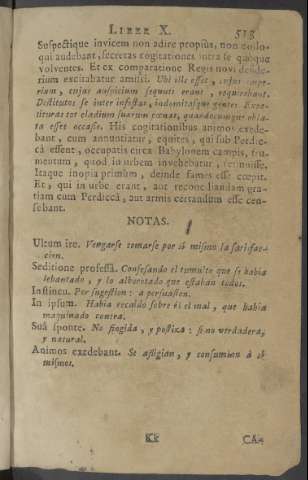 LIBER X. 513
Suspectique invicem non adire propius, non collo-
qui audebant, secretas cogitationes intra se quoque
volventes. Et ex comparatione Regis novi deside-
rium excitabatur amissi. Ubi ille esset, cujus impe-
rium, cujus auspicium sequuti erant, requirebant.
Destitutos se inter infestas, indomitasque gentes Exe-
tituras tot cladium suarum pœnas, quandocumque obla-
ta esset occasio. His cogitationibus animos exede-
bant, cum annuntiatur, equites, qui sub Perdic-
câ essent, occupatis circa Babylonem campis, fru-
mentum, quod in urbem invehebatur, retinuisse.
Itaque inopia primum, deinde fames esse cœpit.
Et, qui in urbe erant, aut reconciliandam gra-
tiam cum Perdiccâ, aut armis certandum esse cen-
sebant.
NOTAS.
Ultum ire. Vengarse tomarse por sí mismo la satisfac-
cion.
Seditione professâ. Confesando el tumulto que se habia
lebantado, y lo alborotado que estaban todos.
Instinctu. Por sugestion: a persuasion.
In ipsum. Habia recaído sobre él el mal, que habia
maquinado contra.
Suâ sponte. No fingida, y postiza: si no verdadera,
y natural.
Animos exedebant. Se afligian, y consumian à sí
mismos.
KK CA-